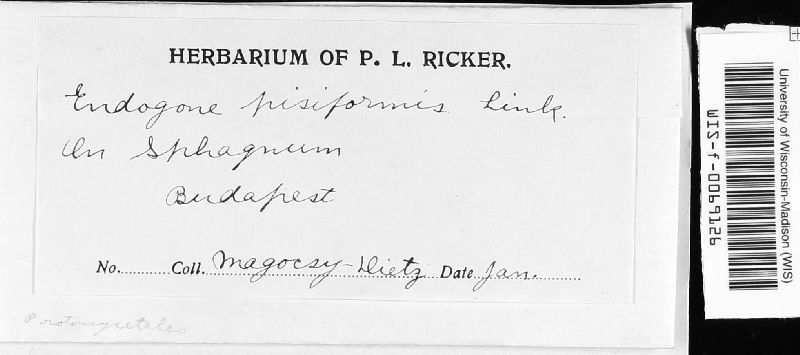 HERBARIUM OF P. L. RICKER.
Endogone pisiformis Link.
On Sphagnum
Budapest
No. Coll. Magocsy-Dietz Date Jan.
Protomycetales
University of Wisconsin-Madison (WIS)
WIS-f-0069126